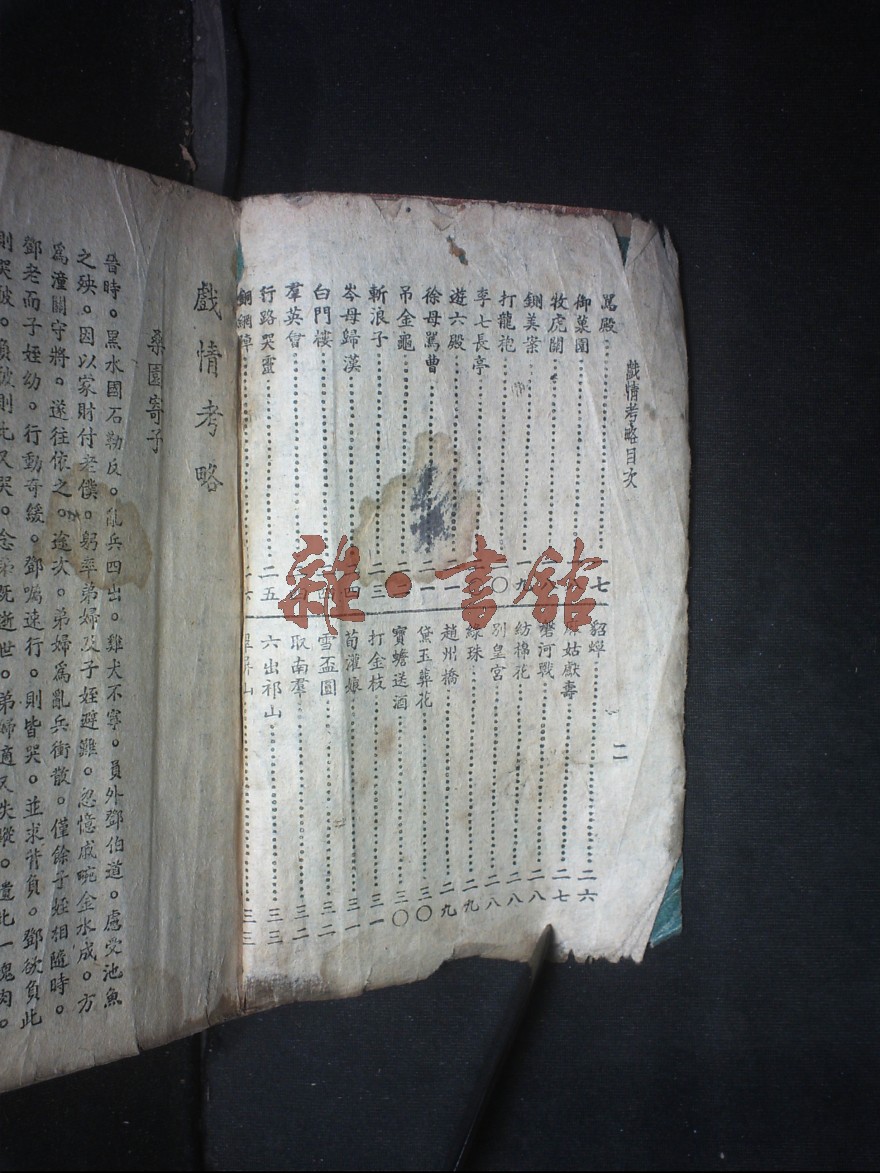 戲情考略目次
二
罵殿
七
御菓園
牧虎關
八
鍘美案
一九
打龍袍
〇
李七長亭
遊六殿
徐母罵曹
二一
吊金龜
二二
斬浪子
二三
岑母歸漢
四
白門樓
羣英會
行路哭靈
二五
銅網陣
六
貂蟬
二六
麻姑獻壽
二七
磐河戰
二八
紡棉花
二八
別皇宮
二八
綠珠
二九
趙州橋
二九
黛玉葬花
三〇
寶蟾送酒
三〇
打金枝
三一
荀灌娘
三一
雪盃圓
三二
取南羣
三二
六出祁山
三三
翠屏山
三三
雜·書館
戲情考略
桑園寄子
晉時。黑水國石勒反。亂兵四出。雞犬不寧。員外鄧伯道。慮受池魚
之殃。因以家財付老僕。躬率弟婦及子姪避難。忽憶戚畹金水成。方
為潼關守將。遂往依之。途次。弟婦為亂兵衝散。僅餘子姪相隨時。
鄧老而子姪幼。行動奇緩。鄧囑速行。則皆哭。並求背負。鄧欲負此
則哭彼。負彼則此又哭。念弟既逝世。弟婦適又失蹤。遺此一塊肉。